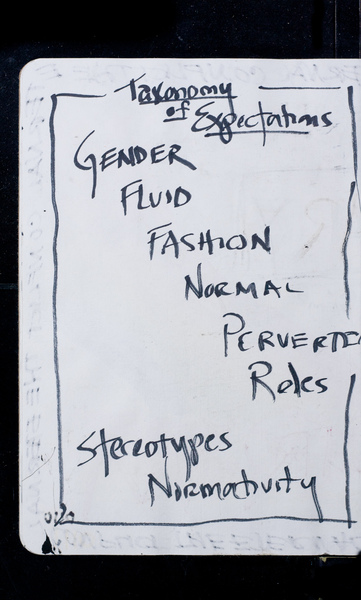 Taxonomy
of
Expectations
GENDER
FLUID
FASHION
NORMAL
PERVERTE
Roles
Stereotypes
Normativity